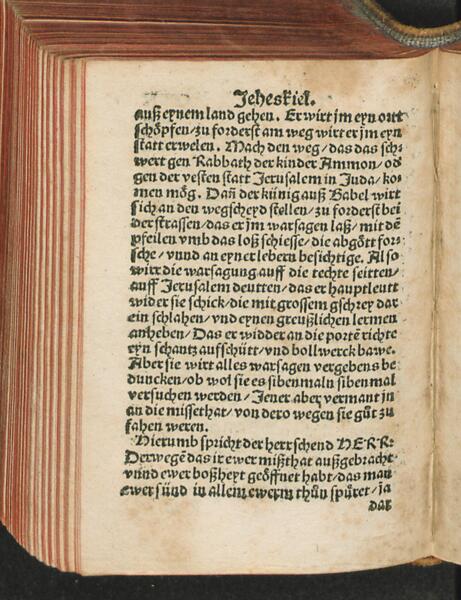 Jeheskiel.
auß eynem land gehen. Er wirt jm eyn ortt
schöpfen/zu forderst am weg wirt er jm eyn
statt erwelen. Mach den weg/das das sch=
wert gen Rabbath der kinder Ammon/od
gen der vesten statt Jerusalem in Juda/ko=
men mög. Dañ der künig auß Babel wirt
sich an den wegscheyd stellen/zu forderst bei
der strassen/das er jm warsagen laß/mit dē
pfeilen vmb das loß schiesse/die abgött for=
sche/vnnd an eyner lebern besichtige. Also
wirt die warsagung auff die rechte seitten/
auff Jerusalem deutten/das er hauptleutt
wider sie schick/die mit grossem gschrey dar
ein schlahen/vnd eynen greußlichen lermen
anheben/Das er widder an die portē richte
eyn schantz auffschütt/vnd bollwerck bawe.
Aber sie wirt alles warsagen vergebens be
duncken/ob wol sie es siben maln siben mal
versuchen werden/Jener aber vermant jn
an die missethat/von dero wegen sie gfat zu
fahen weren.
Hierumb spricht der herrschend HERR:
Derwegē das ir ewer mißthat außgebracht
vnnd ewer boßheyt geöffnet habt/das man
ewer sünd in allem ewerm thůn spüret/ja
das